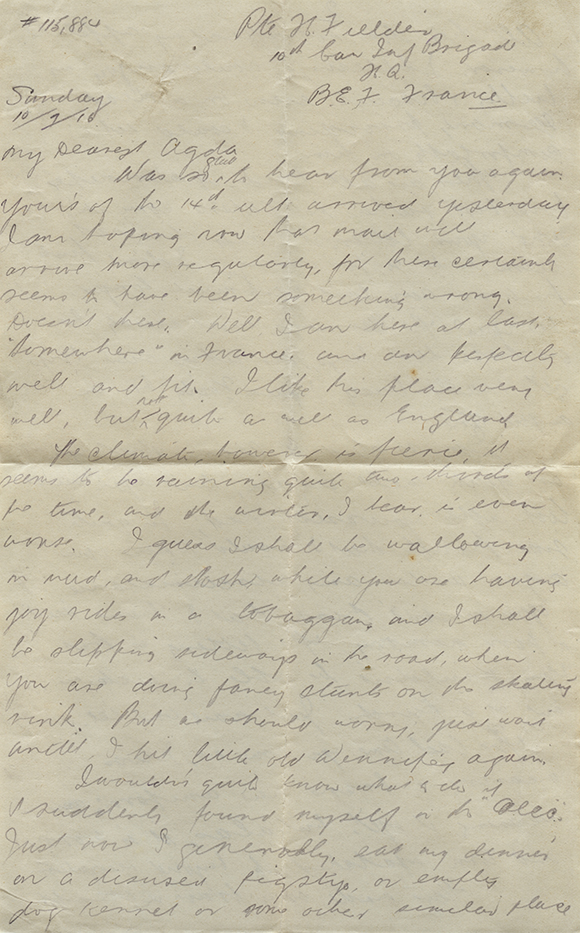 #115,884
Pte H. Fielder
10th Can Inf Brigad
H.Q.
B.E.F. France.
Sunday
10/9/16
My Dearest Agda
Was so glad to hear from you again.
Your's of the 14th ult arrived yesterday
I am hoping now that mail will
arrive more regularly, for there certainly
seems to have been something wrong.
Doesn't there. Well I am here at last.
"Somewhere" in France. and am perfectly
well and fit. I like this place very
well, but not quite a well as England
The climate, however is fierce, it
seems to be raining quite two-thirds of
the time, and the winter, I hear, is even
worse. I guess I shall be wallowing
in mud, and slosh, while you are having
joy rides in a tobaggan, and I shall
be slipping sideways in the road, when
you are doing fancy stunts on the skating
rink. But we should worry, just wait
until I hit little old Winnipeg again.
I wouldn't quite know what to do if
I suddenly found myself in the
Just now I generally, eat my dinner
on a disused pigstye, or empty
dog kennel or some other similar place